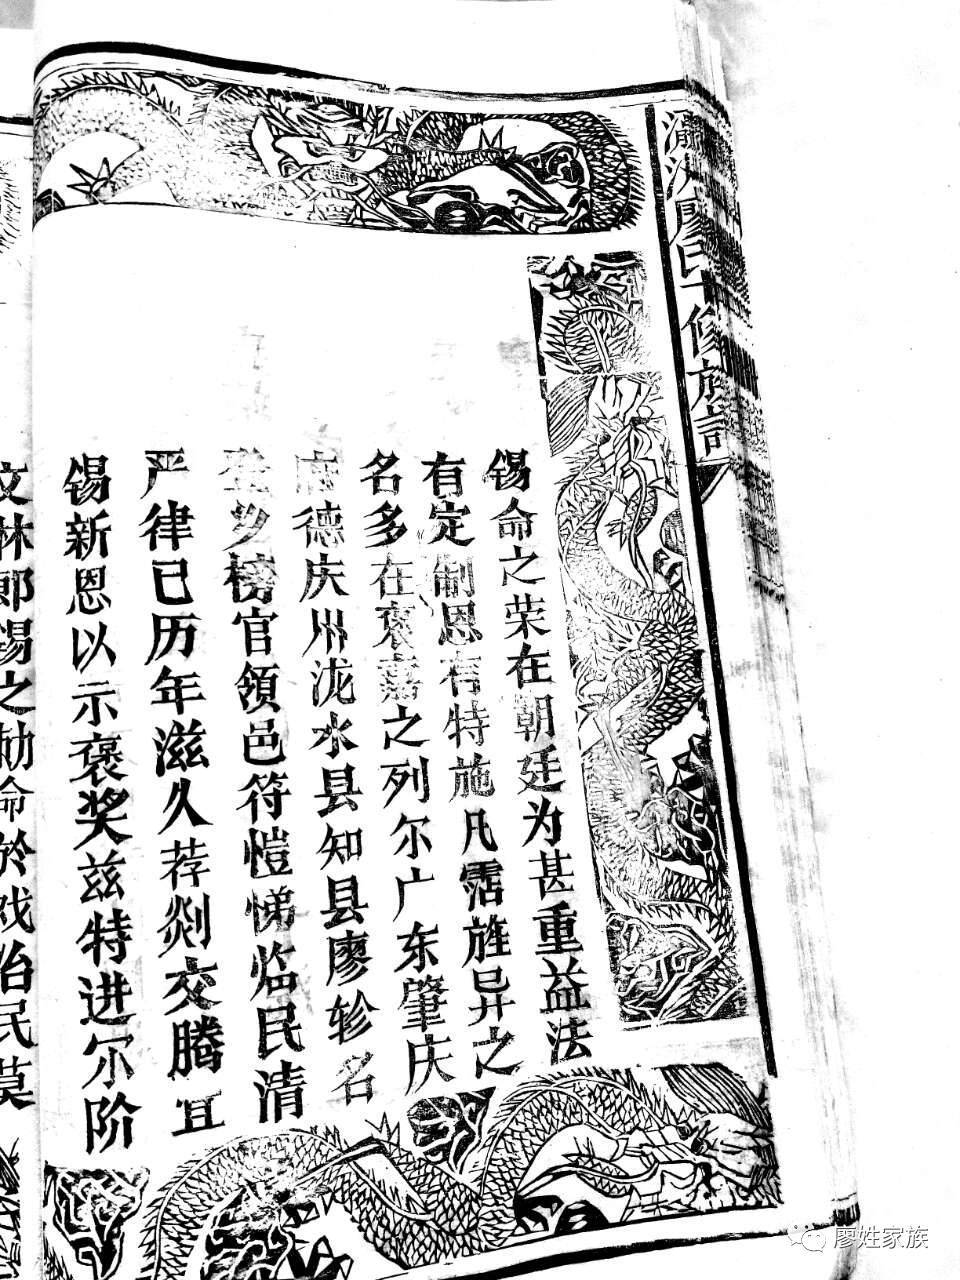 氏修族
锡命之荣在朝廷为甚重益法
有定制恩有特施凡霑旌异之
名多在褒嘉之列尔广东肇庆
府德庆州泷水县知县廖轸名
登乡榜官領邑符恺悌临民清
严律已历年滋久荐剡交腾宜
锡新恩以示褒奖兹特进尔阶
文林郎锡之勅命於戏治民莫
廖姓家族